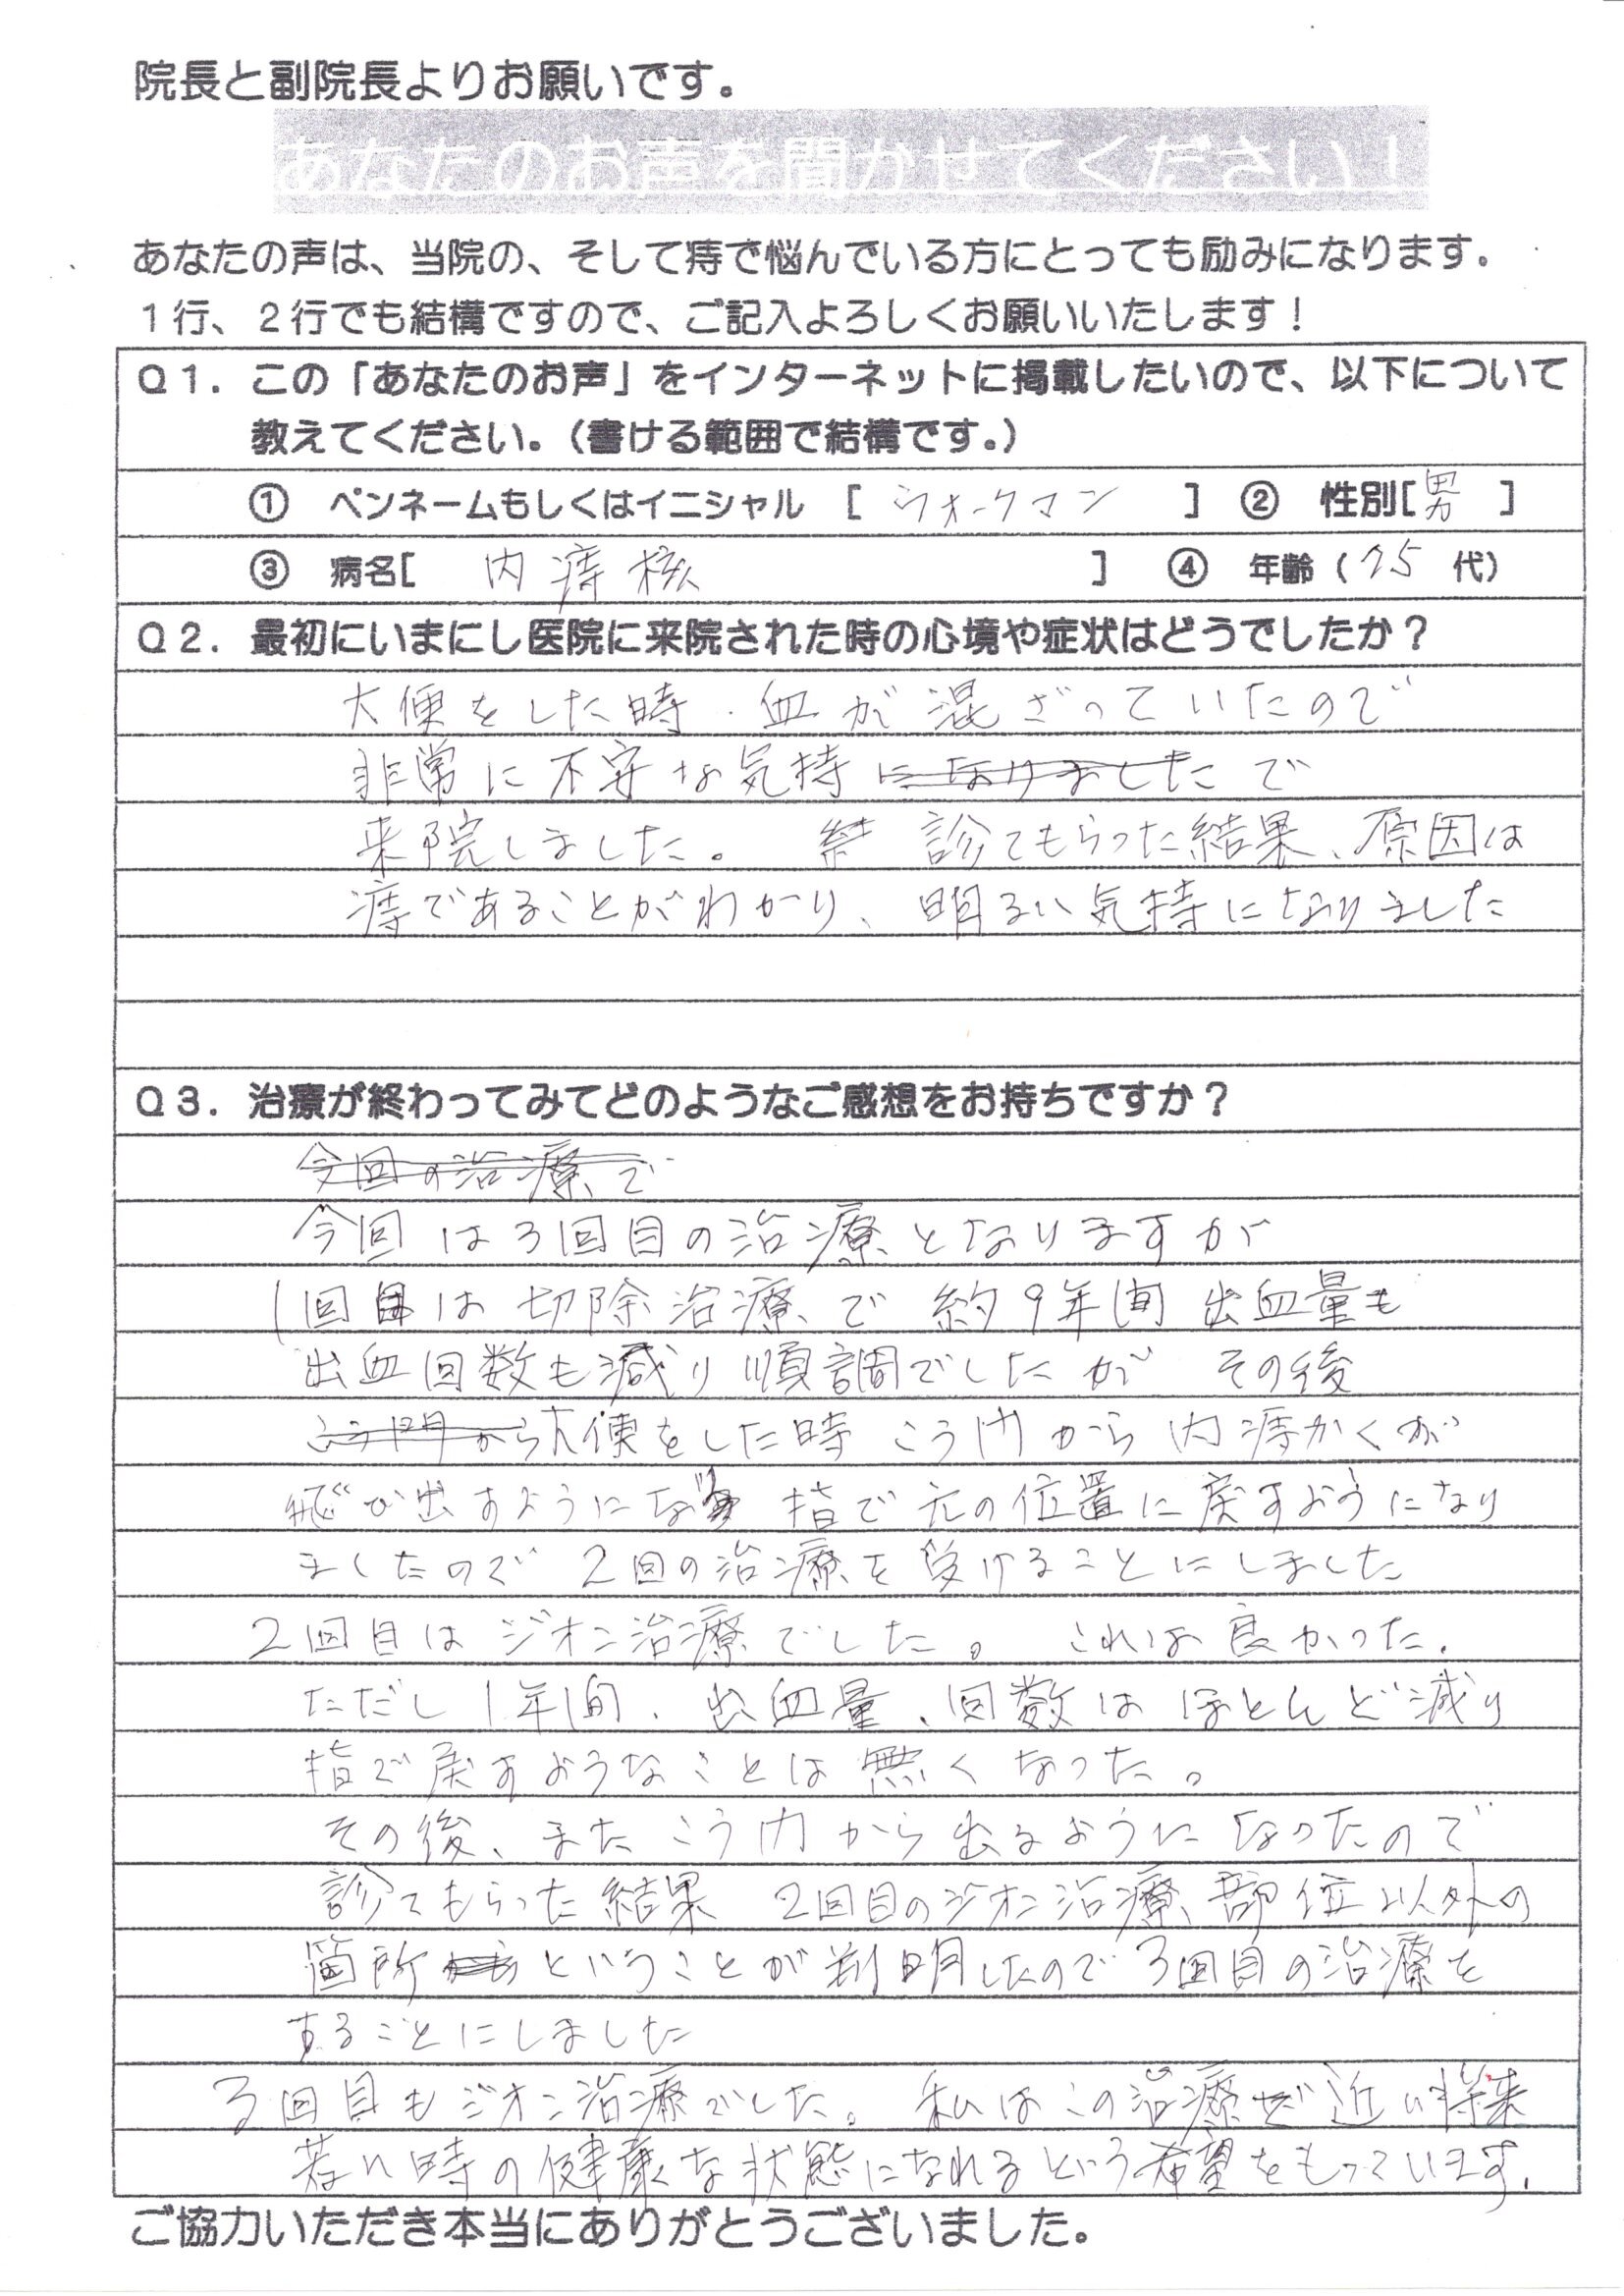 院長と副院長よりお願いです。
あなたのお声を聞かせてください！
あなたの声は、当院の、そして痔で悩んでいる方にとっても励みになります。
１行、２行でも結構ですので、ご記入よろしくお願いいたします！
Ｑ１．この「あなたのお声」をインターネットに掲載したいので、以下について
教えてください。（書ける範囲で結構です。）
① ペンネームもしくはイニシャル [ ウォークマン ] ② 性別[男 ]
③ 病名[ 内痔核 ] ④ 年齢（75 代）
Ｑ２．最初にいまにし医院に来院された時の心境や症状はどうでしたか？
大便をした時、血が混ざっていたので
非常に不安な気持になりましたで
来院しました。 結 診てもらった結果、原因は
痔であることがわかり、明るい気持になりました
Ｑ３．治療が終わってみてどのようなご感想をお持ちですか？
今回の治療で
今回は3回目の治療となりますが
1回目は切除治療で約9年間出血量も
出血回数も減り順調でしたが その後
こう門から大便をした時こう門から内痔かくが
飛び出すようにな 指で元の位置に戻すようになり
ましたので2回の治療を受けることにしました
2回目はジオン治療でした。 これは良かった。
ただし1年間、出血量、回数はほとんど減り
指で戻すようなことは無くなった。
その後、またこう門から出るようになったので
診てもらった結果 2回目のジオン治療部位以外の
箇所 ということが判明したので3回目の治療を
することにしました
3回目もジオン治療でした。 私はこの治療で近い将来
若い時の健康な状態になれるという希望をもっています。
ご協力いただき本当にありがとうございました。